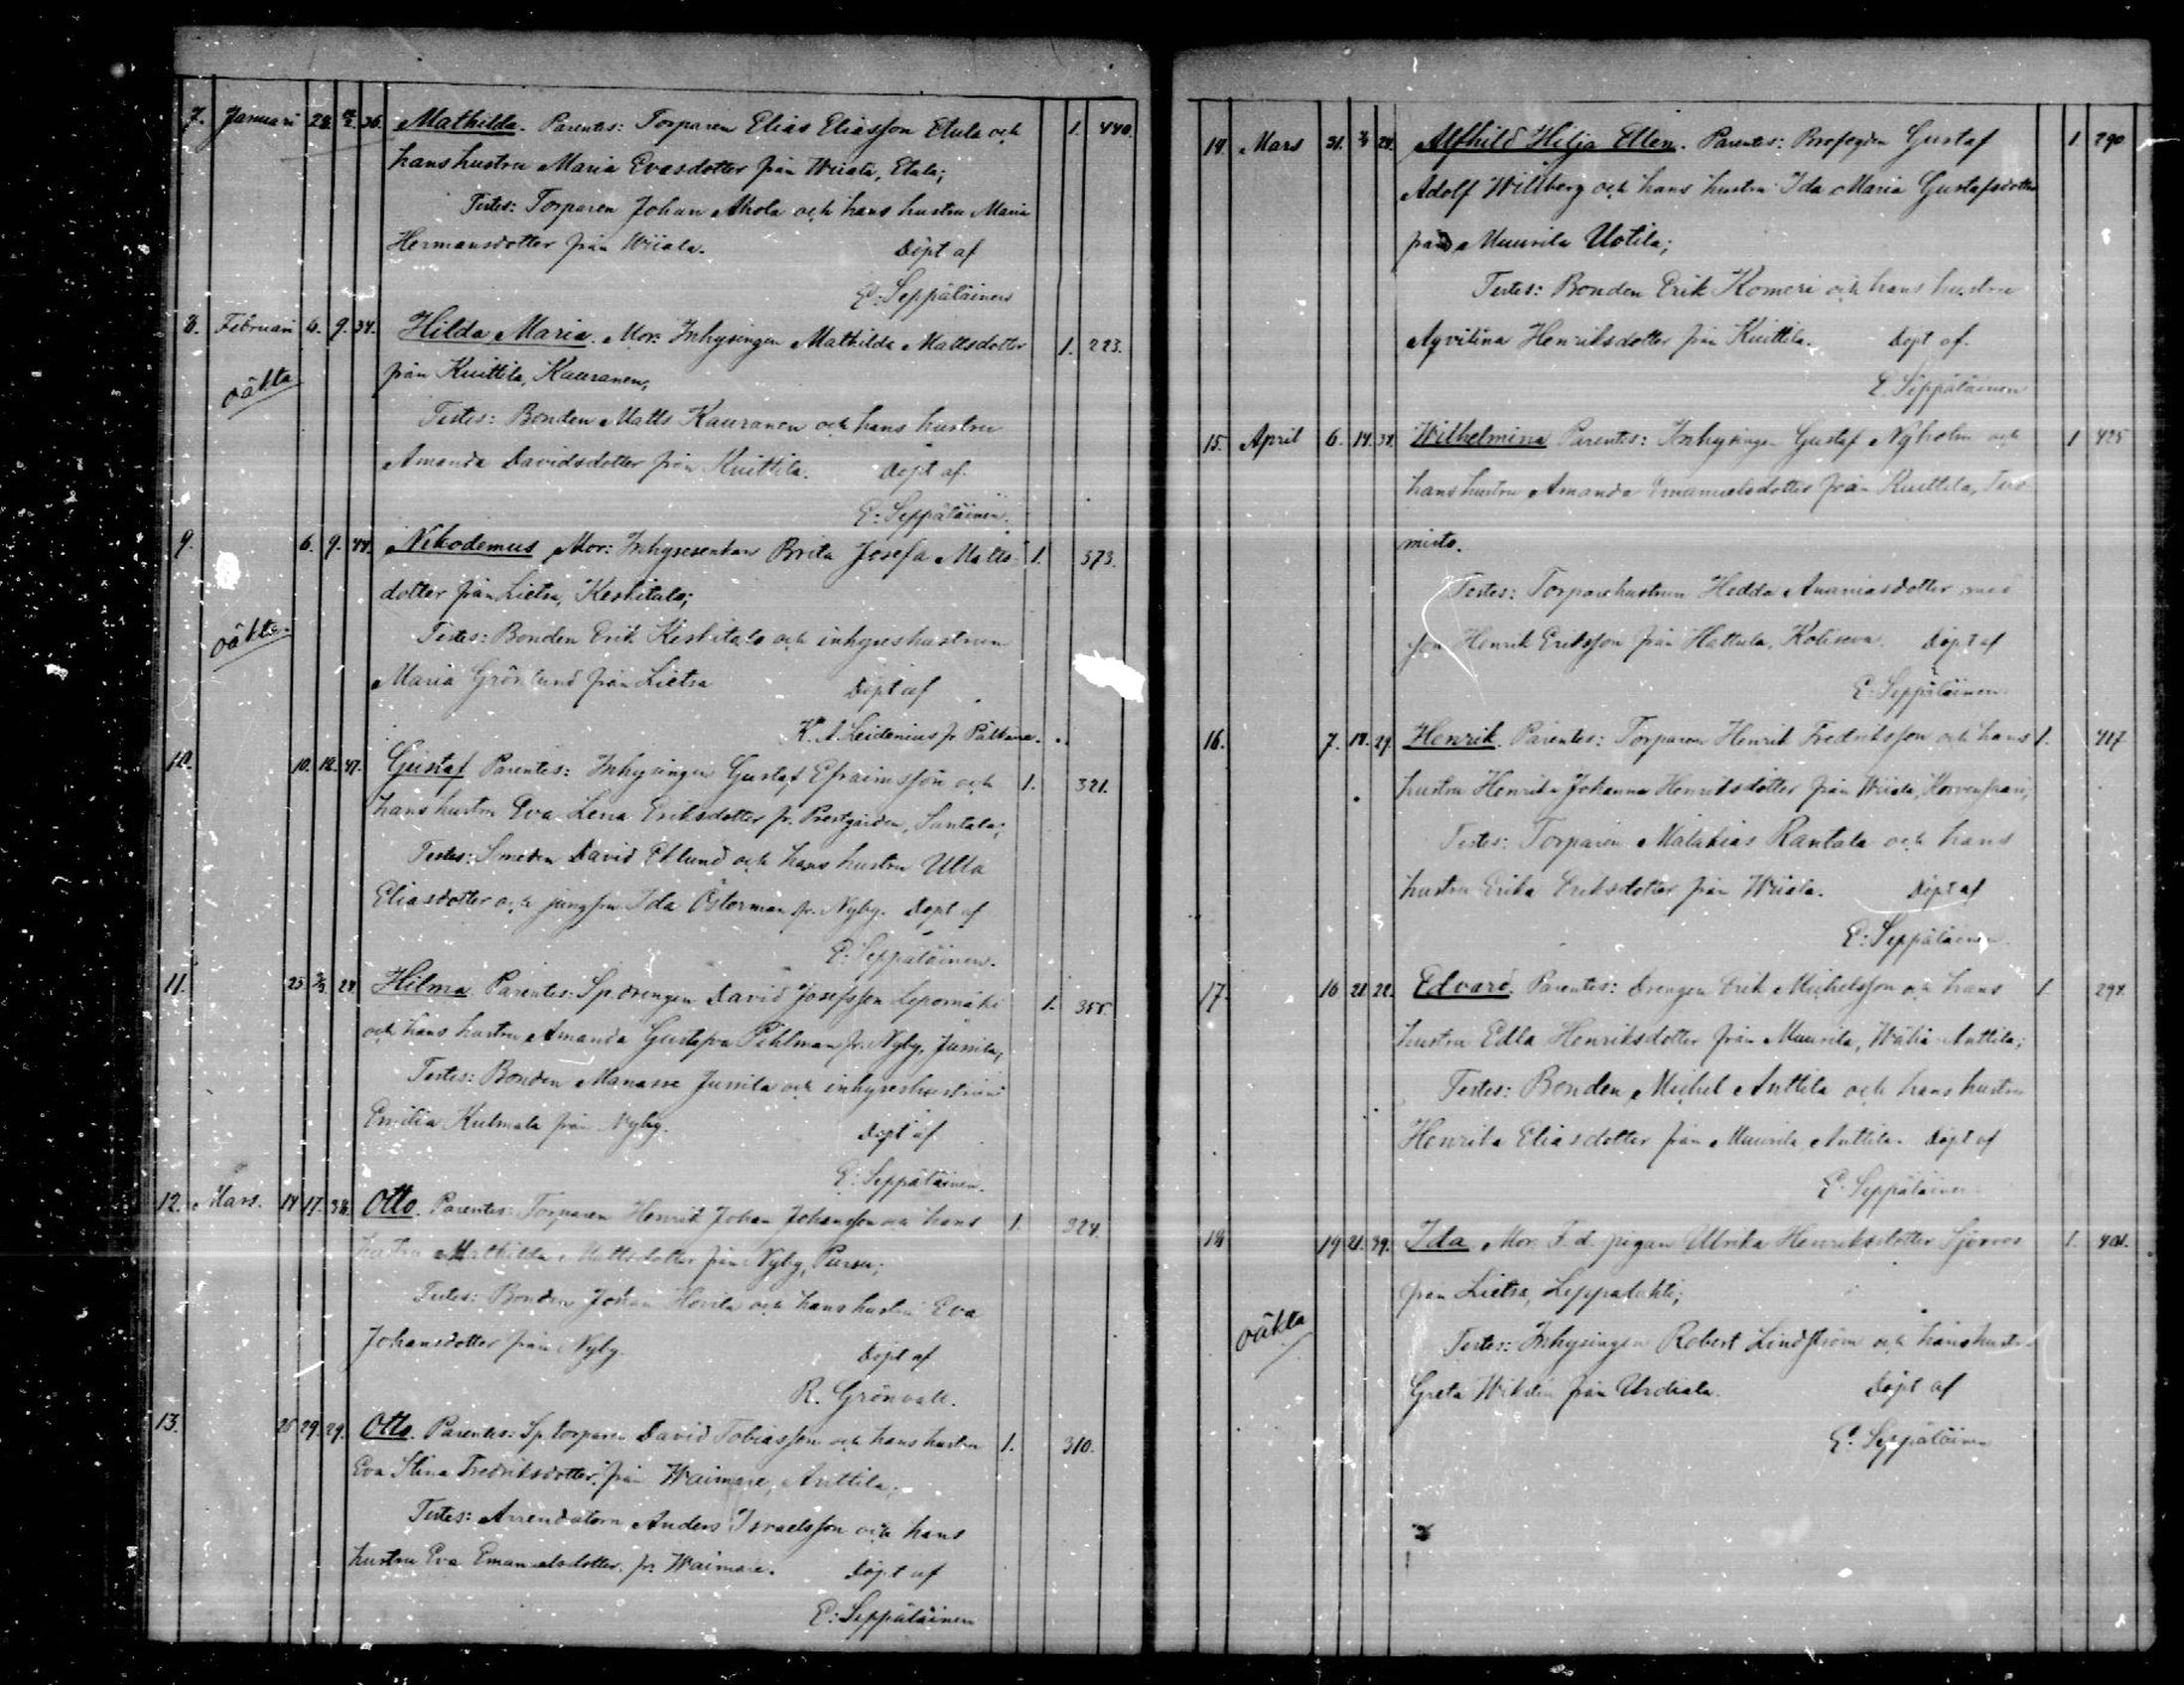 7. Januari 28. 36. Mathilda. Parentes: Torparen Elias Eliasson Etula och 1. 440.
hans hustru Maria Evasdotter från Wiiala, Etala;
Testes: Torparen Johan Ahola och hans hustru Maria
Hermansdotter från Wiiala. Döpt af
E: Seppäläinen
8. Februari 6. 9. 34. Hilda Maria. Mor: Inhysingen Mathilda Mattsdotter 1. 223.
oäkta från Kuittila, Kauranen,
Testes: Bonden Matts Kauranen och hans hustru
Amanda Davidsdotter från Kuittila. Döpt af
E: Seppäläinen.
9. 6. 9. 44. Nikodemus Mor: Inhysesenkan Brita Josefa Matts- 1. 373.
dotter från Lietsa, Keskitalo;
oäkta. Testes: Bonden Erik Keskitalo och inhyseshustrun
Maria Grönlund från Lietsa Döpt af
K. A. Leidenius fr Pälkäne.
10. 10. 12. 47. Gustaf Parentes: Inhysingen Gustaf Efraimsson och 1. 321.
hans hustru Eva Lena Eriksdotter fr. Prestgården, Santala;
Testes: Smeden David Eklund och hans hustru Ulla
Eliasdotter och jungfru Ida Österman fr. Nyby. Döpt af
E: Seppäläinen.
11. 25 2/3 24. Hilma Parentes: Sp.drengen David Josefsson Lepomäki 1. 355.
och hans hustru Amanda Gustafva Pihlman fr. Nyby, Jussila,
Testes: Bonden Manasse Jussila och inhyseshustrun
Emilia Kulmala från Nyby. Döpt af
E: Seppäläinen.
12. Mars. 14 17. 38. Otto. Parentes: Torparen Henrik Johan Johansson och hans 1. 324.
hustru Mathilda Mattsdotter från Nyby, Pursu;
Testes: Bonden Johan Horila och hans hustru Eva
Johansdotter från Nyby. Döpt af
R. Grönvall.
13. 25 29. 29. Otto. Parentes: Sp. torparen David Tobiasson och hans hustru 1. 310.
Eva Stina Fredriksdotter från Waimare, Anttila;
Testes: Arrendatorn Anders Israelsson och hans
hustru Eva Emanuelsdotter fr. Waimare. Döpt af
E: Seppäläinen
14. Mars 31. 24. Alfhild Hilja Ellen. Parentes: Brofogden Gustaf 1. 290
Adolf Willberg och hans hustru Ida Maria Gustafsdotter
från Muurila Uotila;
Testes: Bonden Erik Komeri och hans hustru
Agvilina Henriksdotter från Kuittila. Döpt af.
E. Seppäläinen
15. April 6. 14. 34. Wilhelmina Parentes: Inhysingen Gustaf Nyholm och 1 425
hans hustru Amanda Emanuelsdotter från Kuittila,
misto.
Testes: Torparehustrun Hedda Ananiasdotter med
son Henrik Eriksson från Hattula, Kotiseva. Döpt af
E: Seppäläinen.
16. 7. 14. 29. Henrik. Parentes: Torparen Henrik Fredriksson och hans 1. 417
hustru Henrika Johanna Henriksdotter från Wiiala,
Testes: Torparen Malakias Rantala och hans
hustru Erika Eriksdotter från Wiiala. Döpt af
E: Seppäläinen.
17. 16 21 22. Edvard. Parentes: Drengen Erik Michelsson och hans 1. 294.
hustru Edla Henriksdotter från Muurila, Wälia Anttila;
Testes: Bonden Michel Anttila och hans hustru
Henrika Eliasdotter från Muurila Anttila. Döpt af
E: Seppäläinen
18 19 21. 39. Ida. Mor: F. d. pigan Ulrika Henriksdotter 1. 401.
från Lietsa, Leppälahti;
oäkta Testes: Inhysingen Robert Lindström och hans hustru
Greta Wikstén från Urdiala. Döpt af
E: Seppäläinen